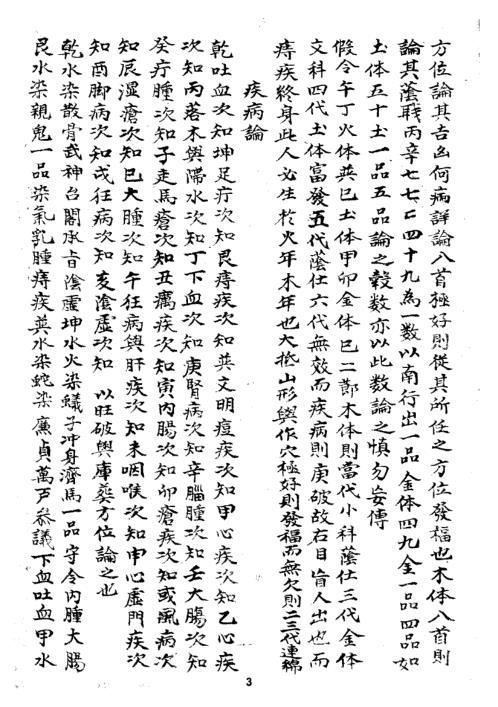 方位論其吉凶何病詳論八首極好則從其所任之方位發福也木体八首則
論其蔭戰丙辛七七二四十九為一數以南行出一品金体四九金一品四品如
土体五十土一品五品論之穀數亦以此數論之慎勿妄傳
假令午丁火体巽巳土体甲卯金体巳二節木体則當代小科蔭仕三代金体
文科四代土体富發五代蔭仕六代無效而疾病則庚破故右目盲人出也而
痔疾終身此人必生於火年木年也大抵山形與作穴極好則發福而無欠則二三代連綿
疾病論
乾吐血次知坤足疔次知艮痔疾次知巽文明痘疾次知甲心疾次知乙心疾
次知丙落木與滯水次知丁下血次知庚腎病次知辛腦腫次知壬大腸次知
癸疔腫次知子走馬瘡次知丑癘疾次知寅內腸次知卯瘡疾次知或風病次
知辰濕瘡次知巳大腫次知午狂病與肝疾次知未咽喉次知申心虛門疾次
知酉脚病次知戌狂病次知亥陰虛次知 以旺破與庫葬方位論之也
乾水染散骨武神台閣承旨陰虛坤水火染蟻子冲身濟馬一品守令內腫大腸
艮水染親鬼一品染氣乳腫痔疾巽水染蛇染廉貞萬戶叅議下血吐血甲水
3